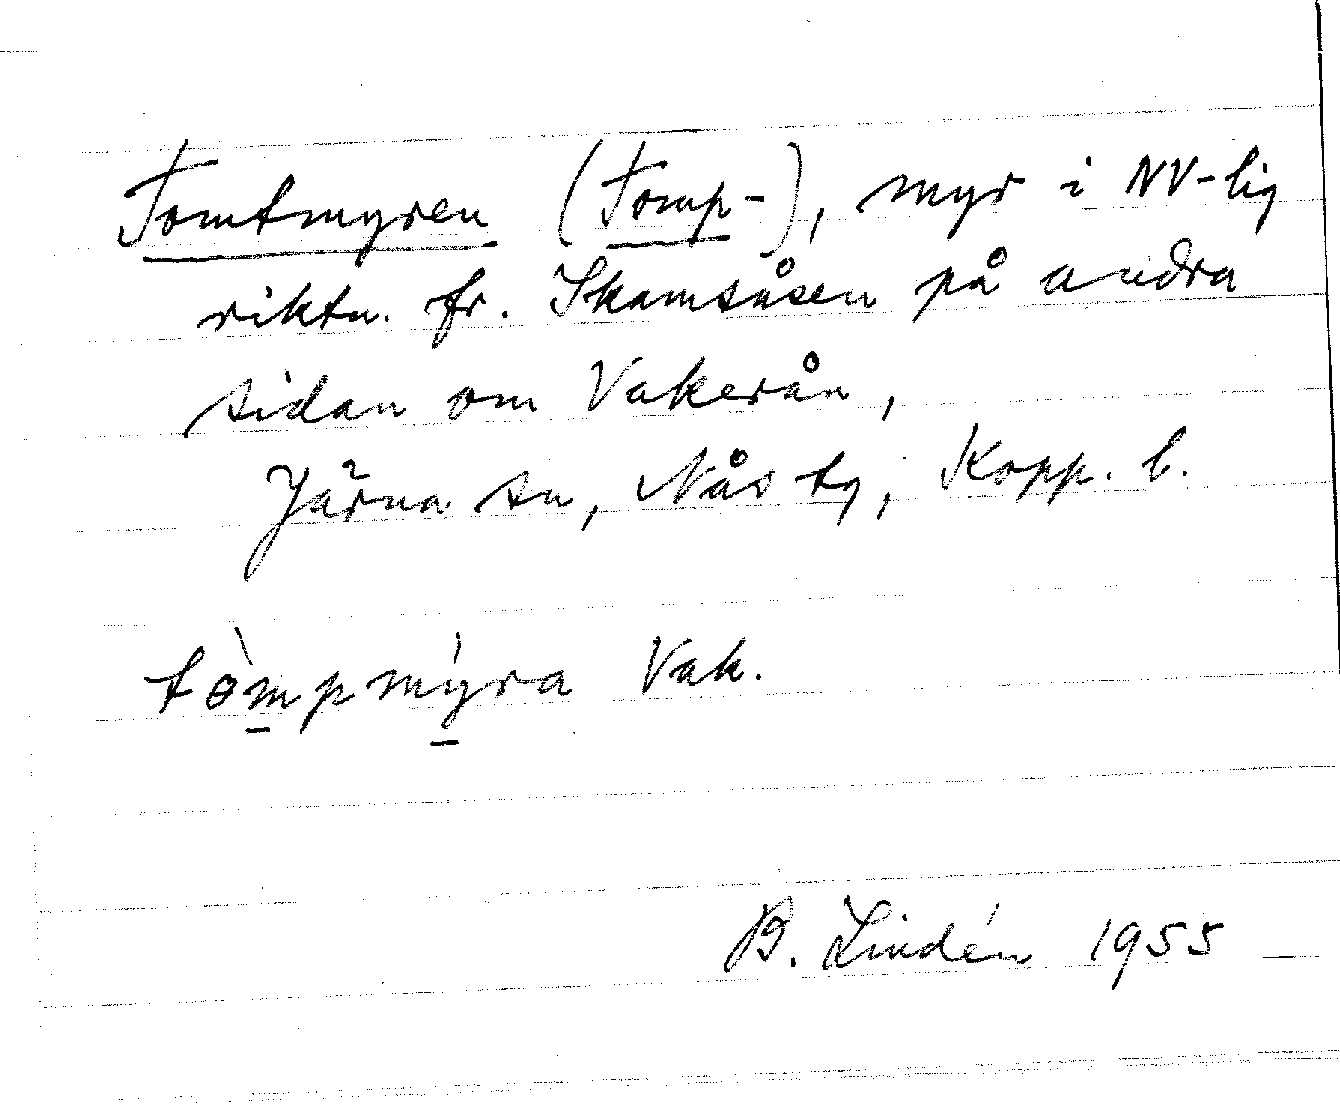 Tomtmyren (Tomp-), myr i NV-lig
riktn. fr. Skamsåsen på andra
sidan om Vakerån,
Järna sn, Nås tg, Kopp. l.
tòmpmýra Vak.
B. Lindén 1955